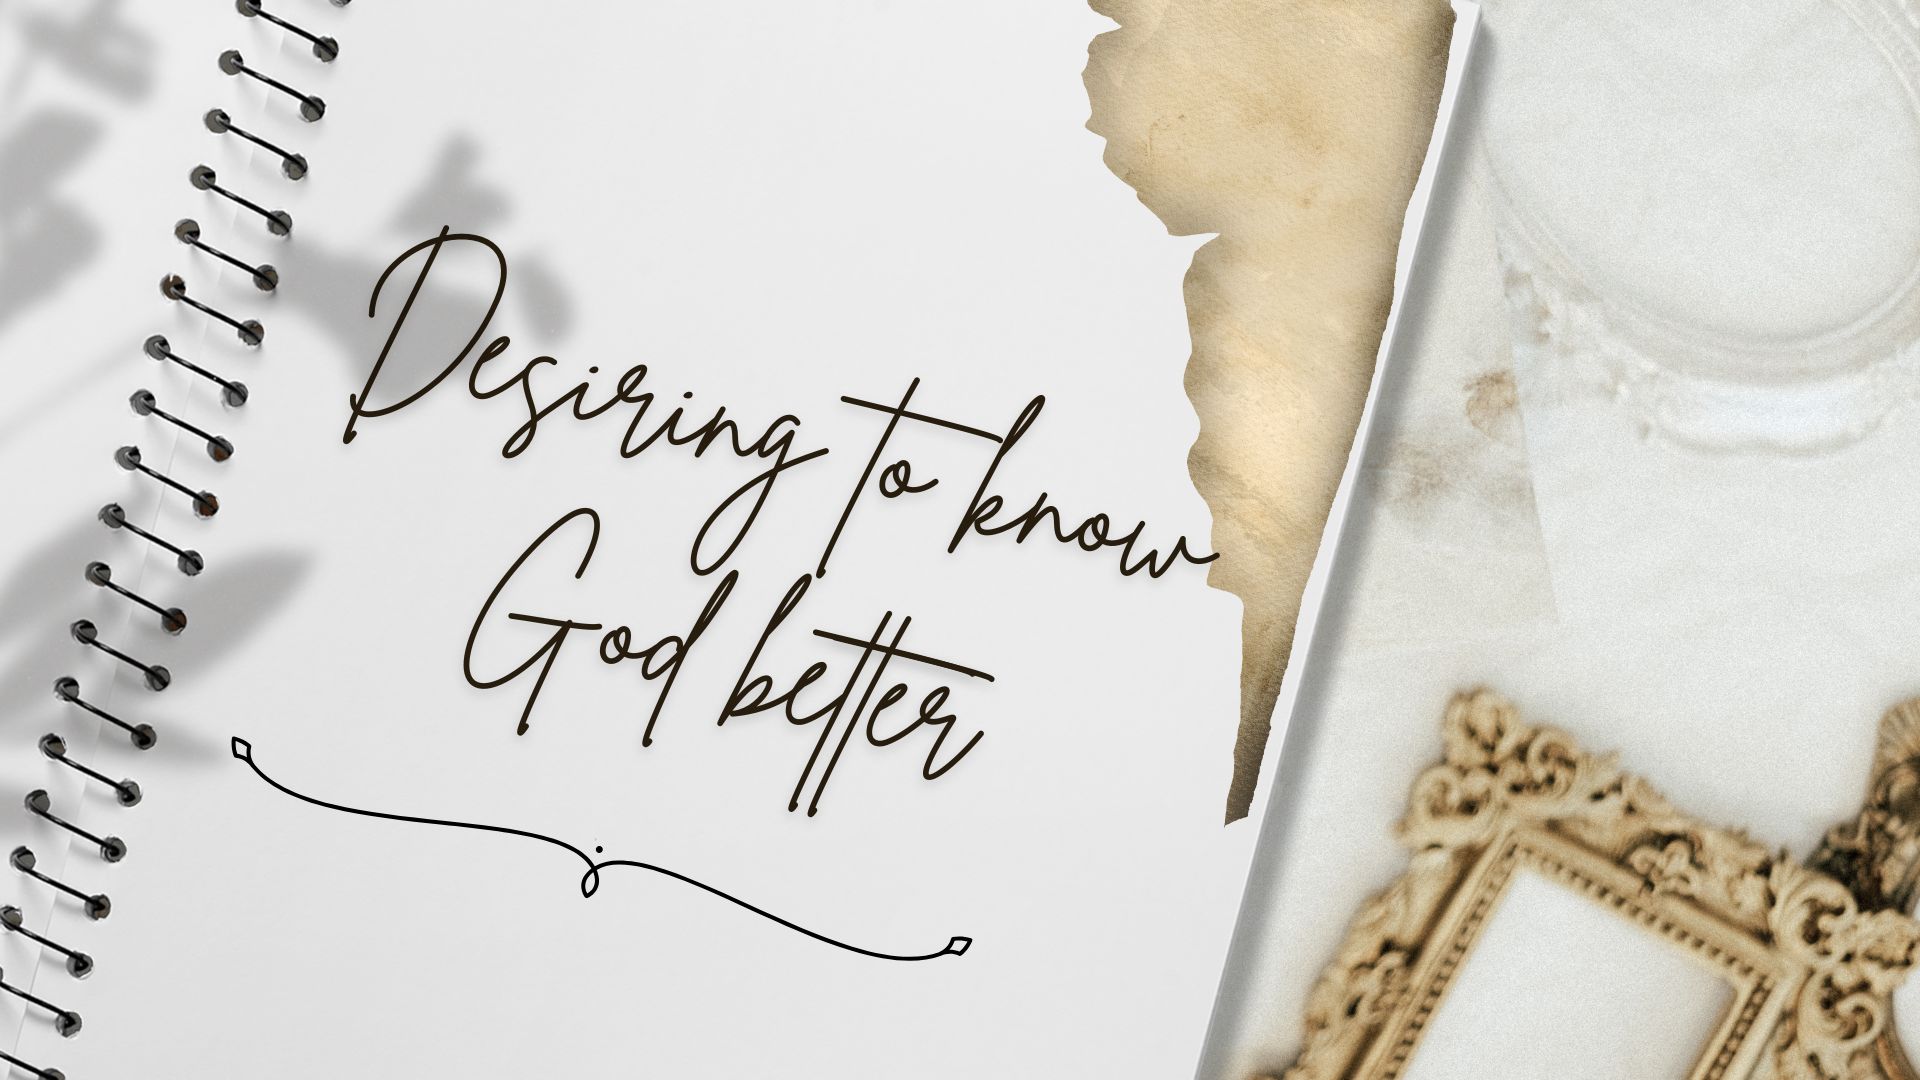 Desiring to know
God better